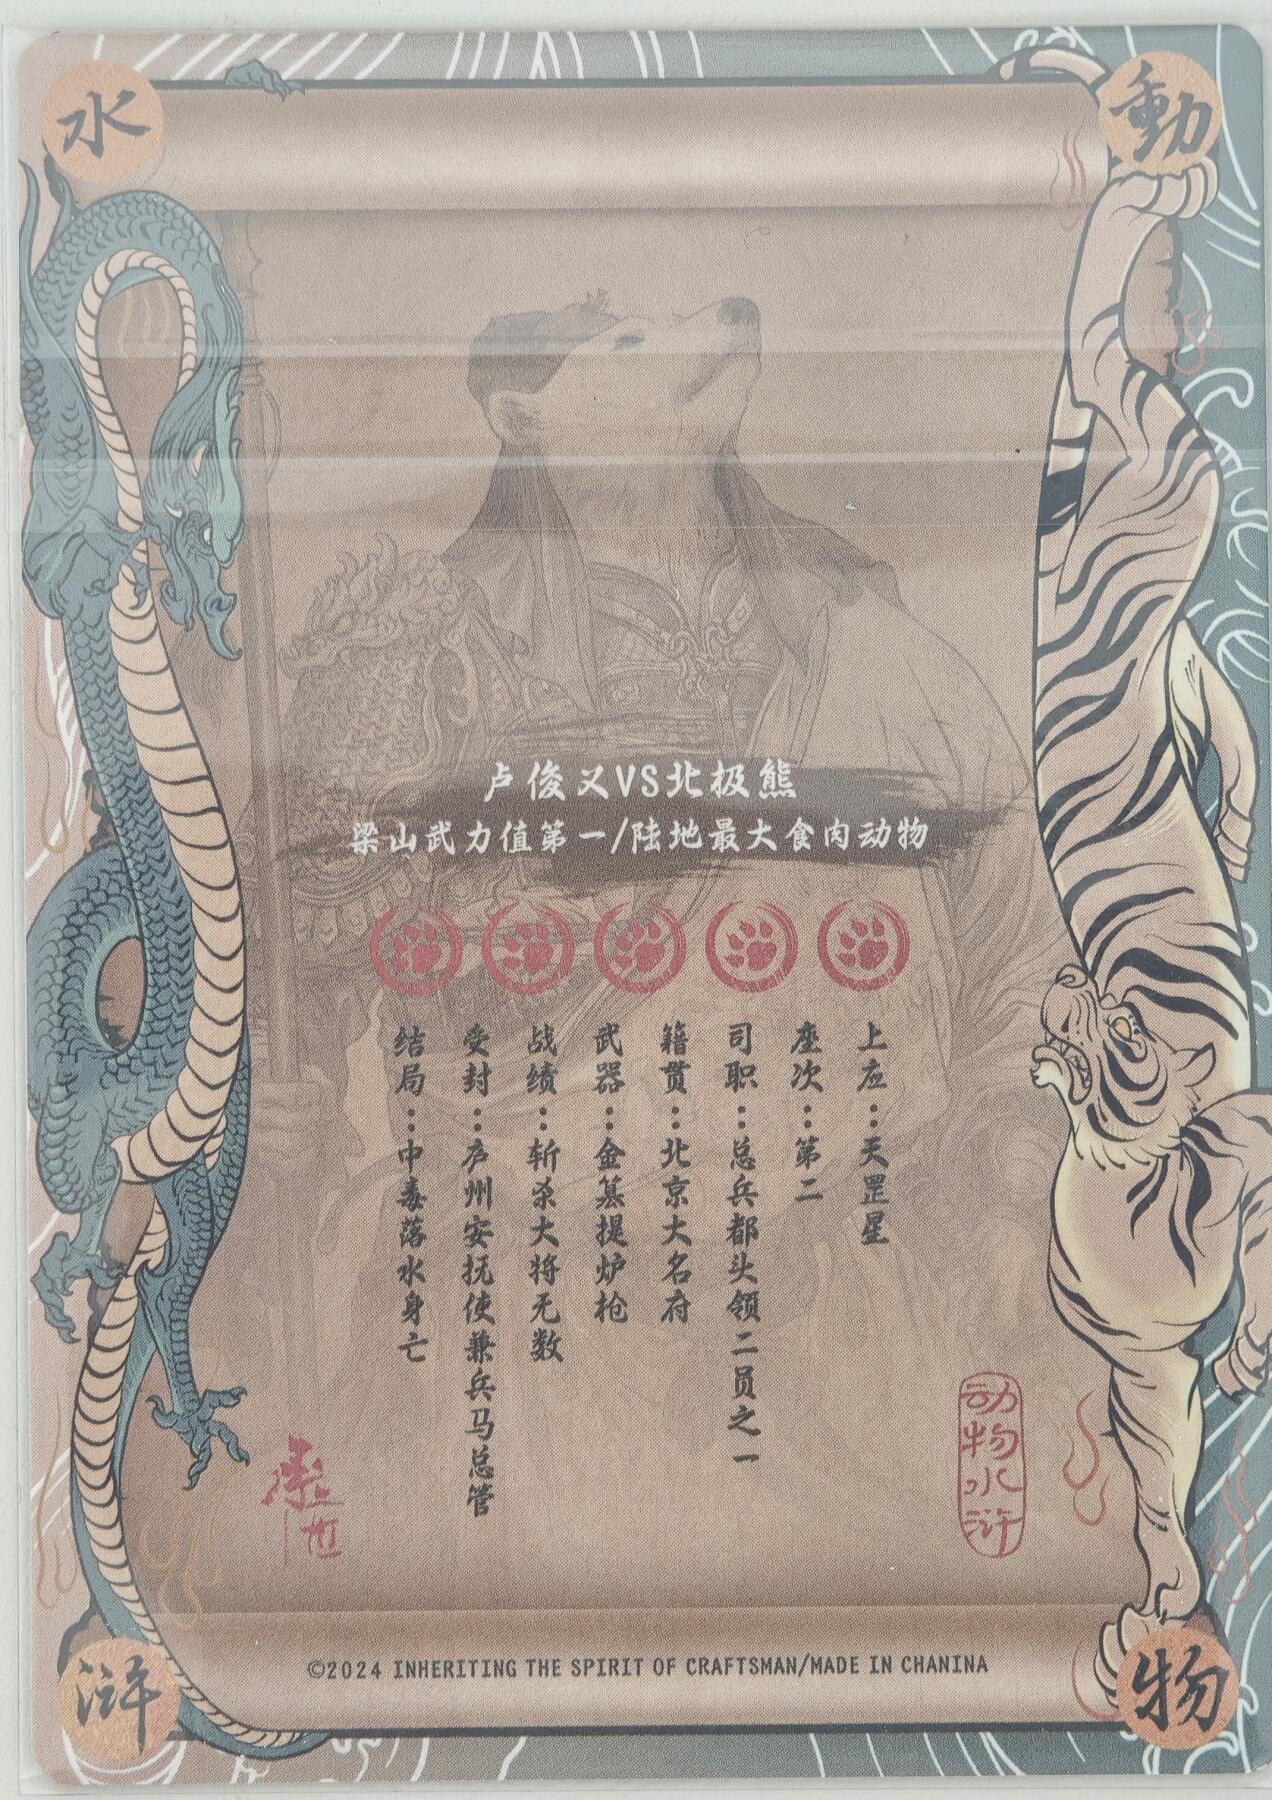 水
動
卢俊义VS北极熊
梁山武力值第一/陆地最大食肉动物
上应：天罡星
座次：第二
司职：总兵都头领二员之一
籍贯：北京大名府
武器：金纂提炉枪
战绩：斩杀大将无数
受封：庐州安抚使兼兵马总管
结局：中毒落水身亡
动物水浒
承世
©2024 INHERITING THE SPIRIT OF CRAFTSMAN/MADE IN CHANINA
浒
物